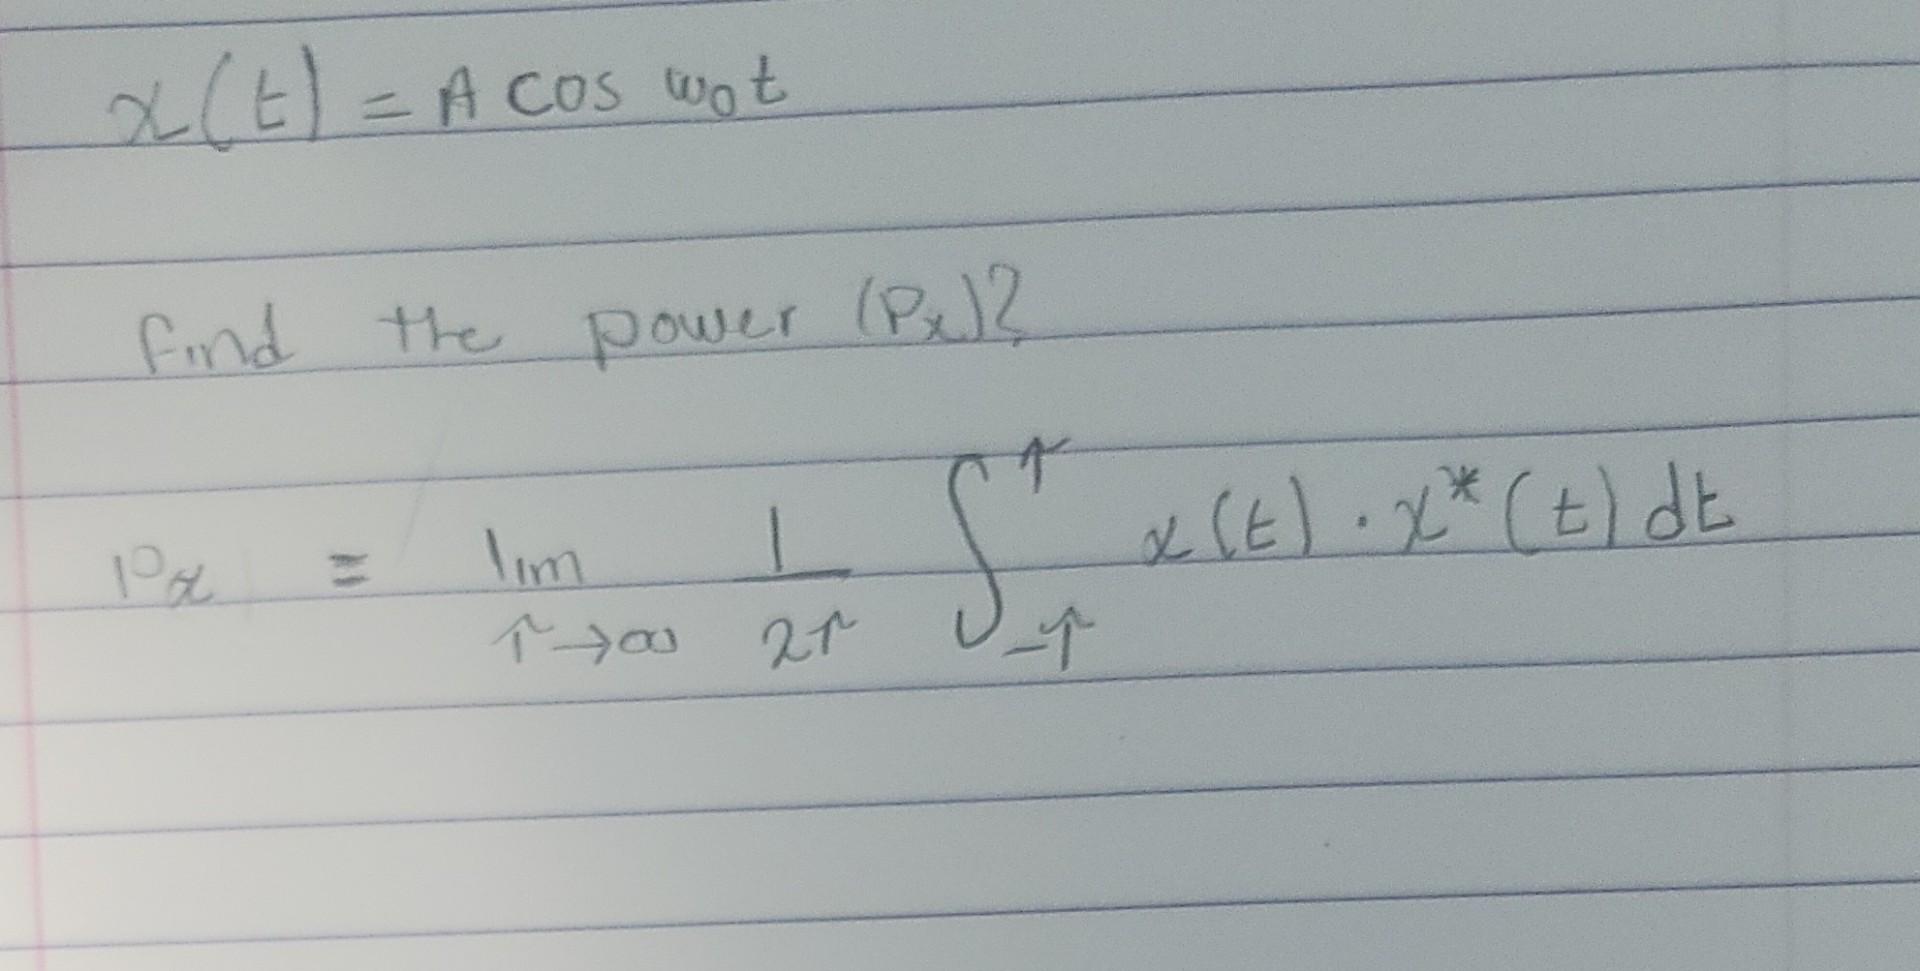 x(t) = A cos w₀t
find the power (Pₓ)?
Pₓ = lim T→∞ 1/2T ∫_{-T}^{T} x(t) . x*(t) dt